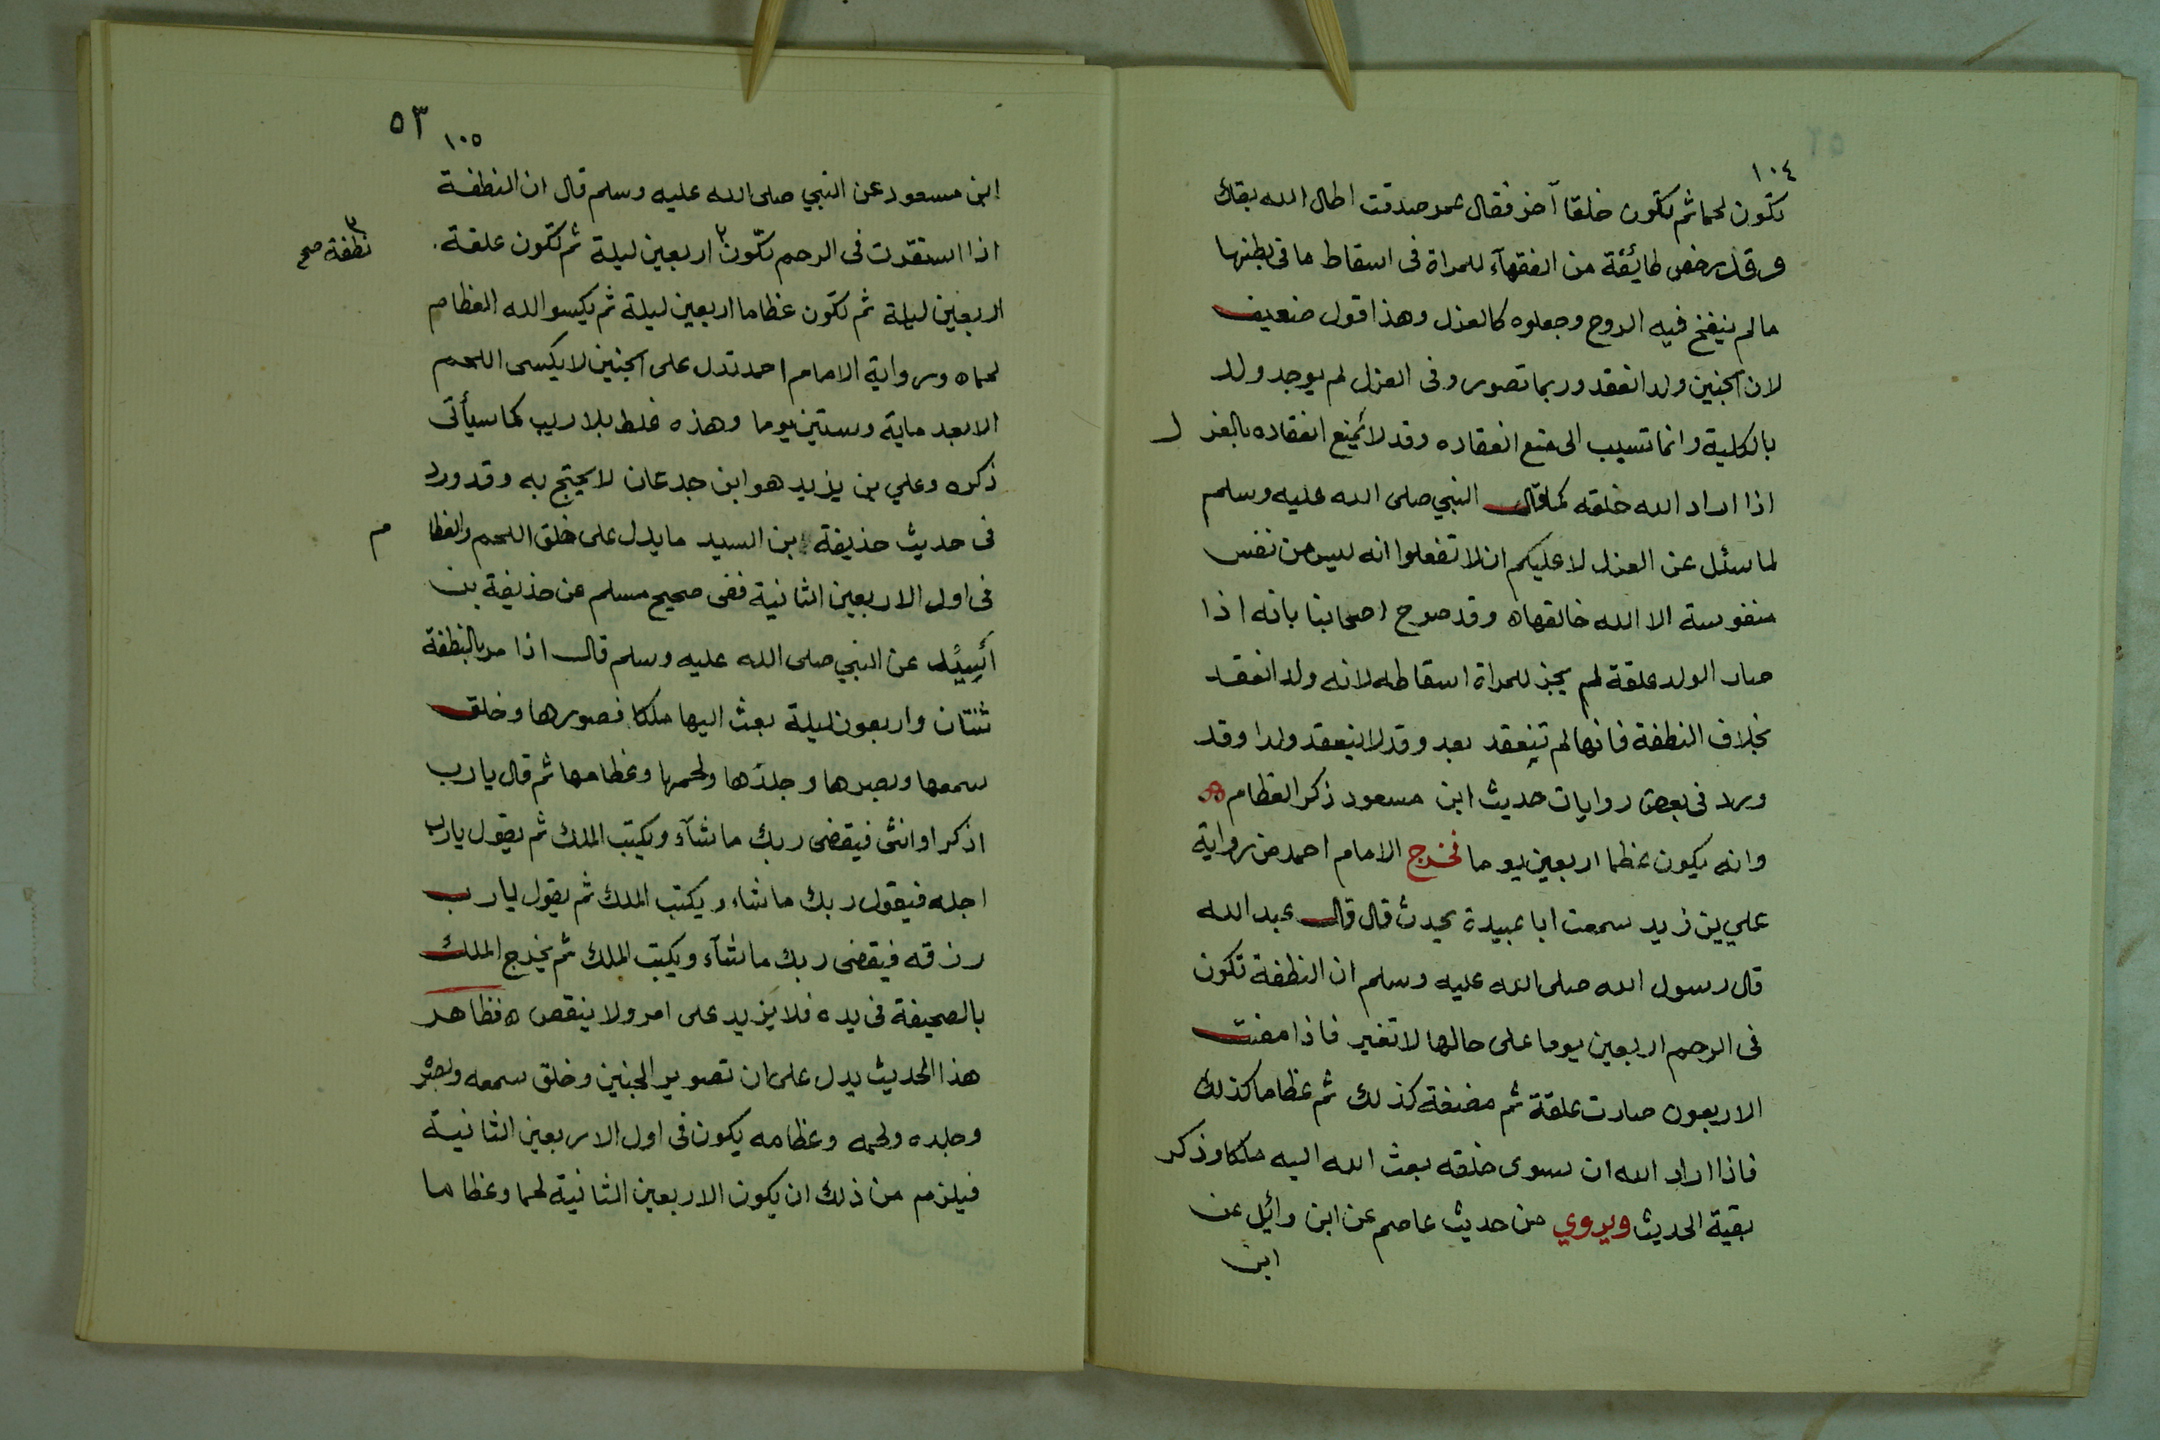 ١٠٤
تكون لحما ثم تكون خلقا آخر فقال عمر صدقت اطال الله بقاك
وقد رخص طائفة من الفقهآء للمراة فى اسقاط ما فى بطنها
ما لم ينفخ فيه الروح وجعلوه كالعزل وهذا قول ضعيف
لان الجنين ولد انعقد وربما تصور وفى العزل لم يوجد ولد
بالكلية وانما تسبب الى منع انعقاده وقد لا يمنع انعقاده بالعز ل
اذا اراد الله خلقه كما قال النبي صلى الله عليه وسلم
لما سئل عن العزل لا عليكم ان لا تفعلوا انه ليس من نفس
منفوسة الا الله خالقها ه وقد صرح اصحابنا بانه اذا
صار الولد علقة لم يجز للمراة اسقاطه لانه ولد انعقد
بخلاف النطفة فانها لم تنعقد بعد وقد لا ينعقد ولدا وقد
ورد فى بعض روايات حديث ابن مسعود ذكر العظام
وانه يكون عظما اربعين يوما فخرج الامام احمد من رواية
علي بن زيد سمعت ابا عبيدة يحدث قال قال عبد الله
قال رسول الله صلى الله عليه وسلم ان النطفة تكون
فى الرحم اربعين يوما على حالها لا تغير فاذا مضت
الاربعون صارت علقة ثم مضغة كذلك ثم عظاما كذلك
فاذا اراد الله ان يسوى خلقه بعث الله اليه ملكا وذكر
بقية الحديث ويروي من حديث عاصم عن ابن وائل عن
ابن
٥٣
١٠٥
ابن مسعود عن النبي صلى الله عليه وسلم قال ان النطفة
اذا استقرت فى الرحم تكون ٣ اربعين ليلة ثم تكون علقة
٣ نطفة صح
اربعين ليلة ثم تكون عظاما اربعين ليلة ثم يكسو الله العظام
لحما ه ورواية الامام احمد تدل على الجنين لا يكسى اللحم
الا بعد ماية وستين يوما وهذه غلط بلا ريب كما سيأتى
ذكره وعلي بن يزيد هو ابن جدعان لا يحتج به وقد ورد
فى حديث حذيفة ابن السيد ما يدل على خلق اللحم والعظا م
فى اول الاربعين الثانية ففى صحيح مسلم عن حذيفة بن
أسيد عن النبي صلى الله عليه وسلم قال اذا مر بالنطفة
ثنتان واربعون ليلة بعث اليها ملكا فصورها وخلق
سمعها وبصرها وجلدها ولحمها وعظامها ثم قال يا رب
اذكر او انثى فيقضى ربك ما شآء ويكتب الملك ثم يقول يا رب
اجله فيقول ربك ما شاء ويكتب الملك ثم يقول يا رب
رزقه فيقضى ربك ما شآء ويكتب الملك ثم يخرج الملك
بالصحيفة فى يده فلا يزيد على امر ولا ينقص ه فظاهر
هذا الحديث يدل على ان تصوير الجنين وخلق سمعه وبصره
وجلده ولحمه وعظامه يكون فى اول الاربعين الثانية
فيلزم من ذلك ان يكون الاربعين الثانية لحما وعظاما